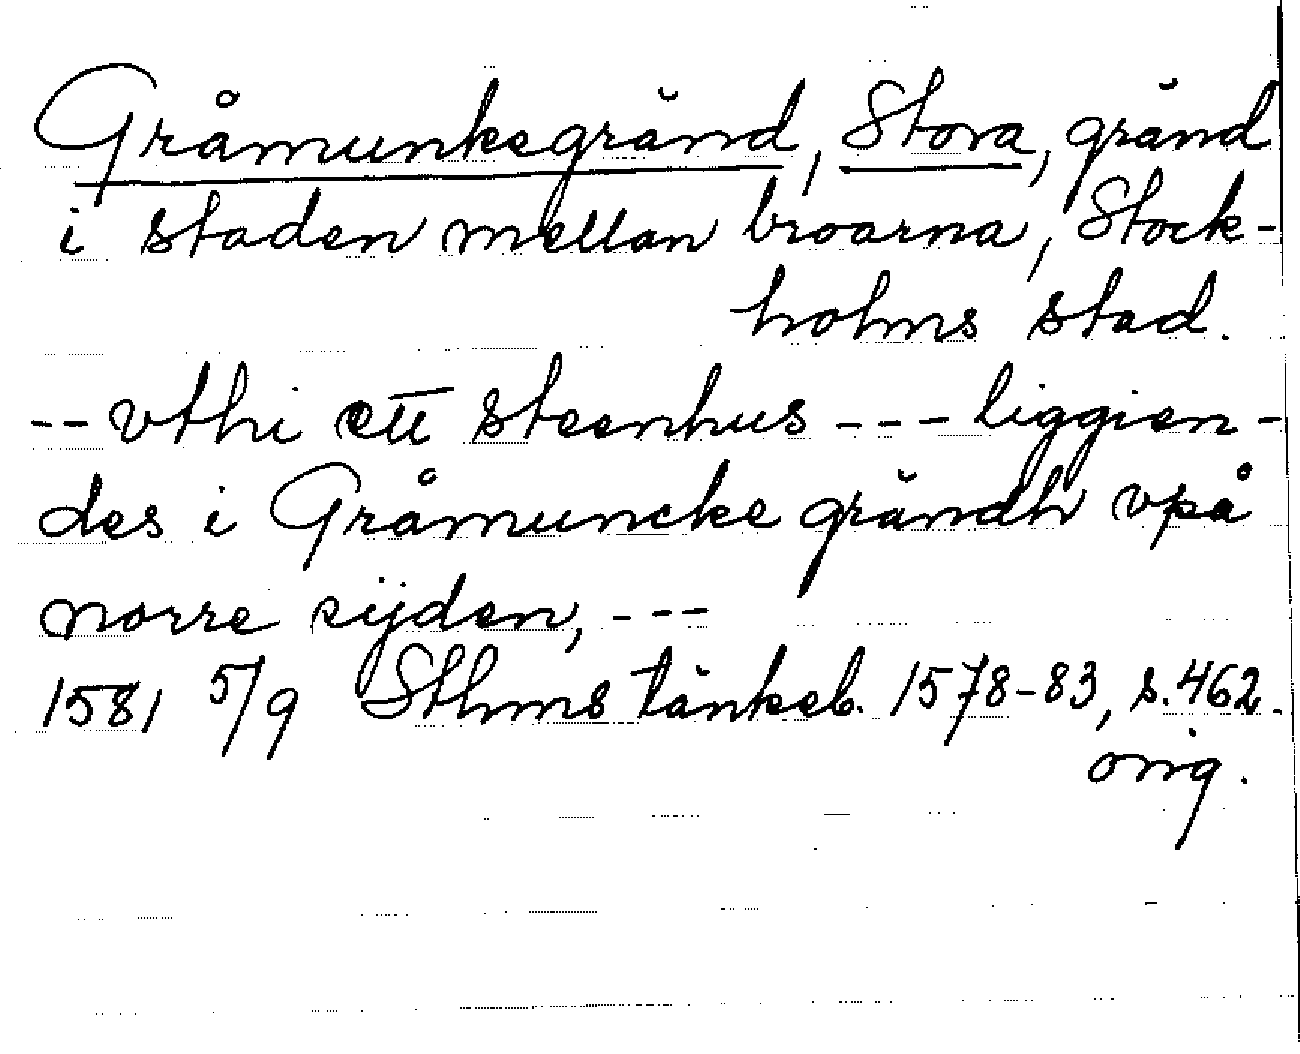 Gråmunksgränd, Stora, gränd
i staden mellan broarna, Stock-
holms stad.
-- vthi ett steenhus --- liggien-
des i Gråmuncke grändh vpå
norre sijden, ---
1581 5/9 Sthms tänkeb. 1578-83, s. 462.
orig.